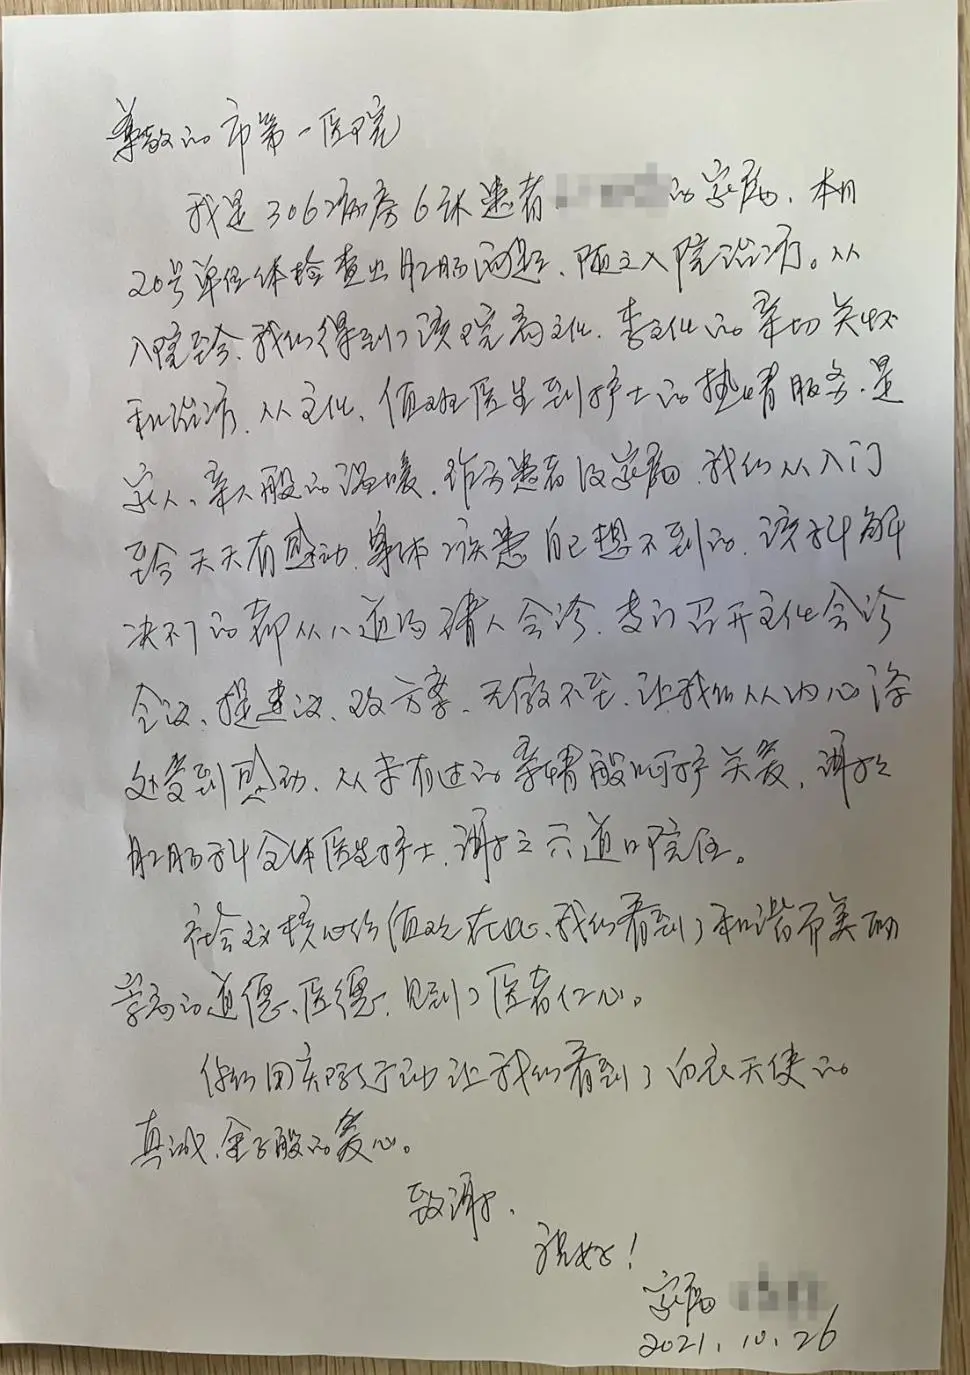 尊敬的市第一医院
我是306病房6床患者的家属、本月
20号单位体检查出肛肠问题、随之入院治疗。从
入院至今、我们得到了该院高主任、李主任的亲切关怀
和治疗、从主任、值班医生到护士的热情服务、是
家人、亲人般的温暖、作为患者及家属、我们从入门
至今天天有感动、身体疾患自己想不到的、该科解
决不了的都从八道沟请人会诊、专门召开主任会诊
会议、提建议、改方案、无微不至、让我们从内心深
处受到感动、从未有过的亲情般呵护关爱、谢谢
肛肠科全体医生护士、谢谢六道口院住。
社会主义核心价值观在此、我们看到了和谐而美丽
崇高的道德、医德、见到了医者仁心。
你们用实际行动让我们看到了白衣天使的
真诚、金子般的爱心。
致谢、
祝好！
家属
2021.10.26